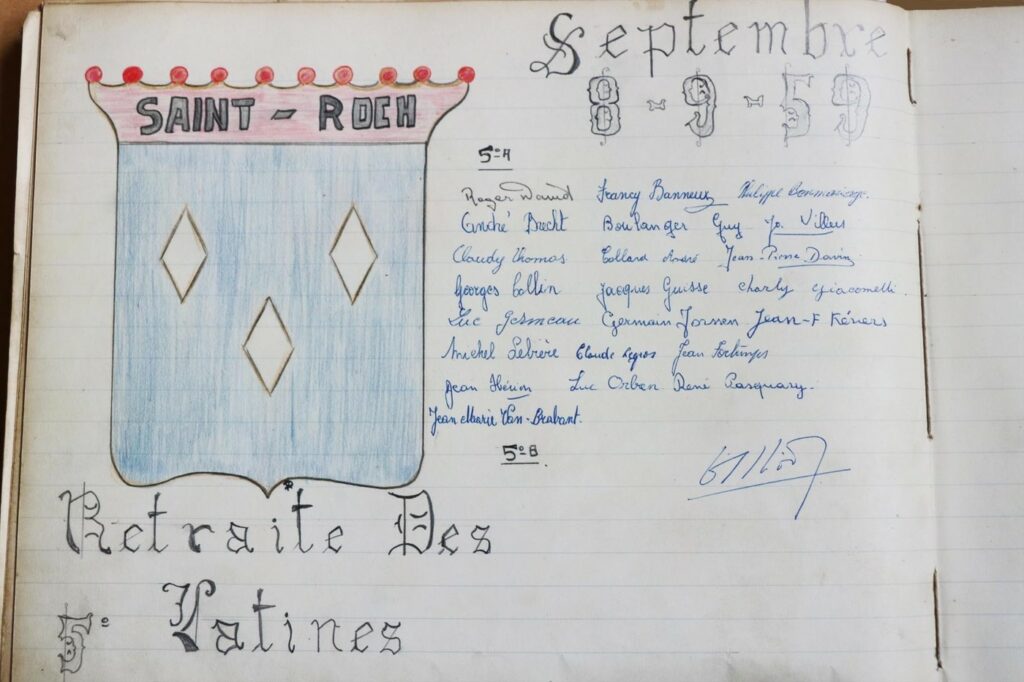 Septembre
8 - 9 - 59
SAINT - ROCH
5e A
Roger David Francy Banneux Philippe
André Brecht Boulanger Guy Jo. Villers
Claudy Thomas Collard André Jean-Pierre Davin
Georges Collin Jacques Guisse Charly Giacometti
Luc Germain Jean-F
Michel Claude Legros Jean
Jean Luc Orban René Pasquasy.
Jean Marie Van-Brabant.
5e B
Retraite Des
5e Latines